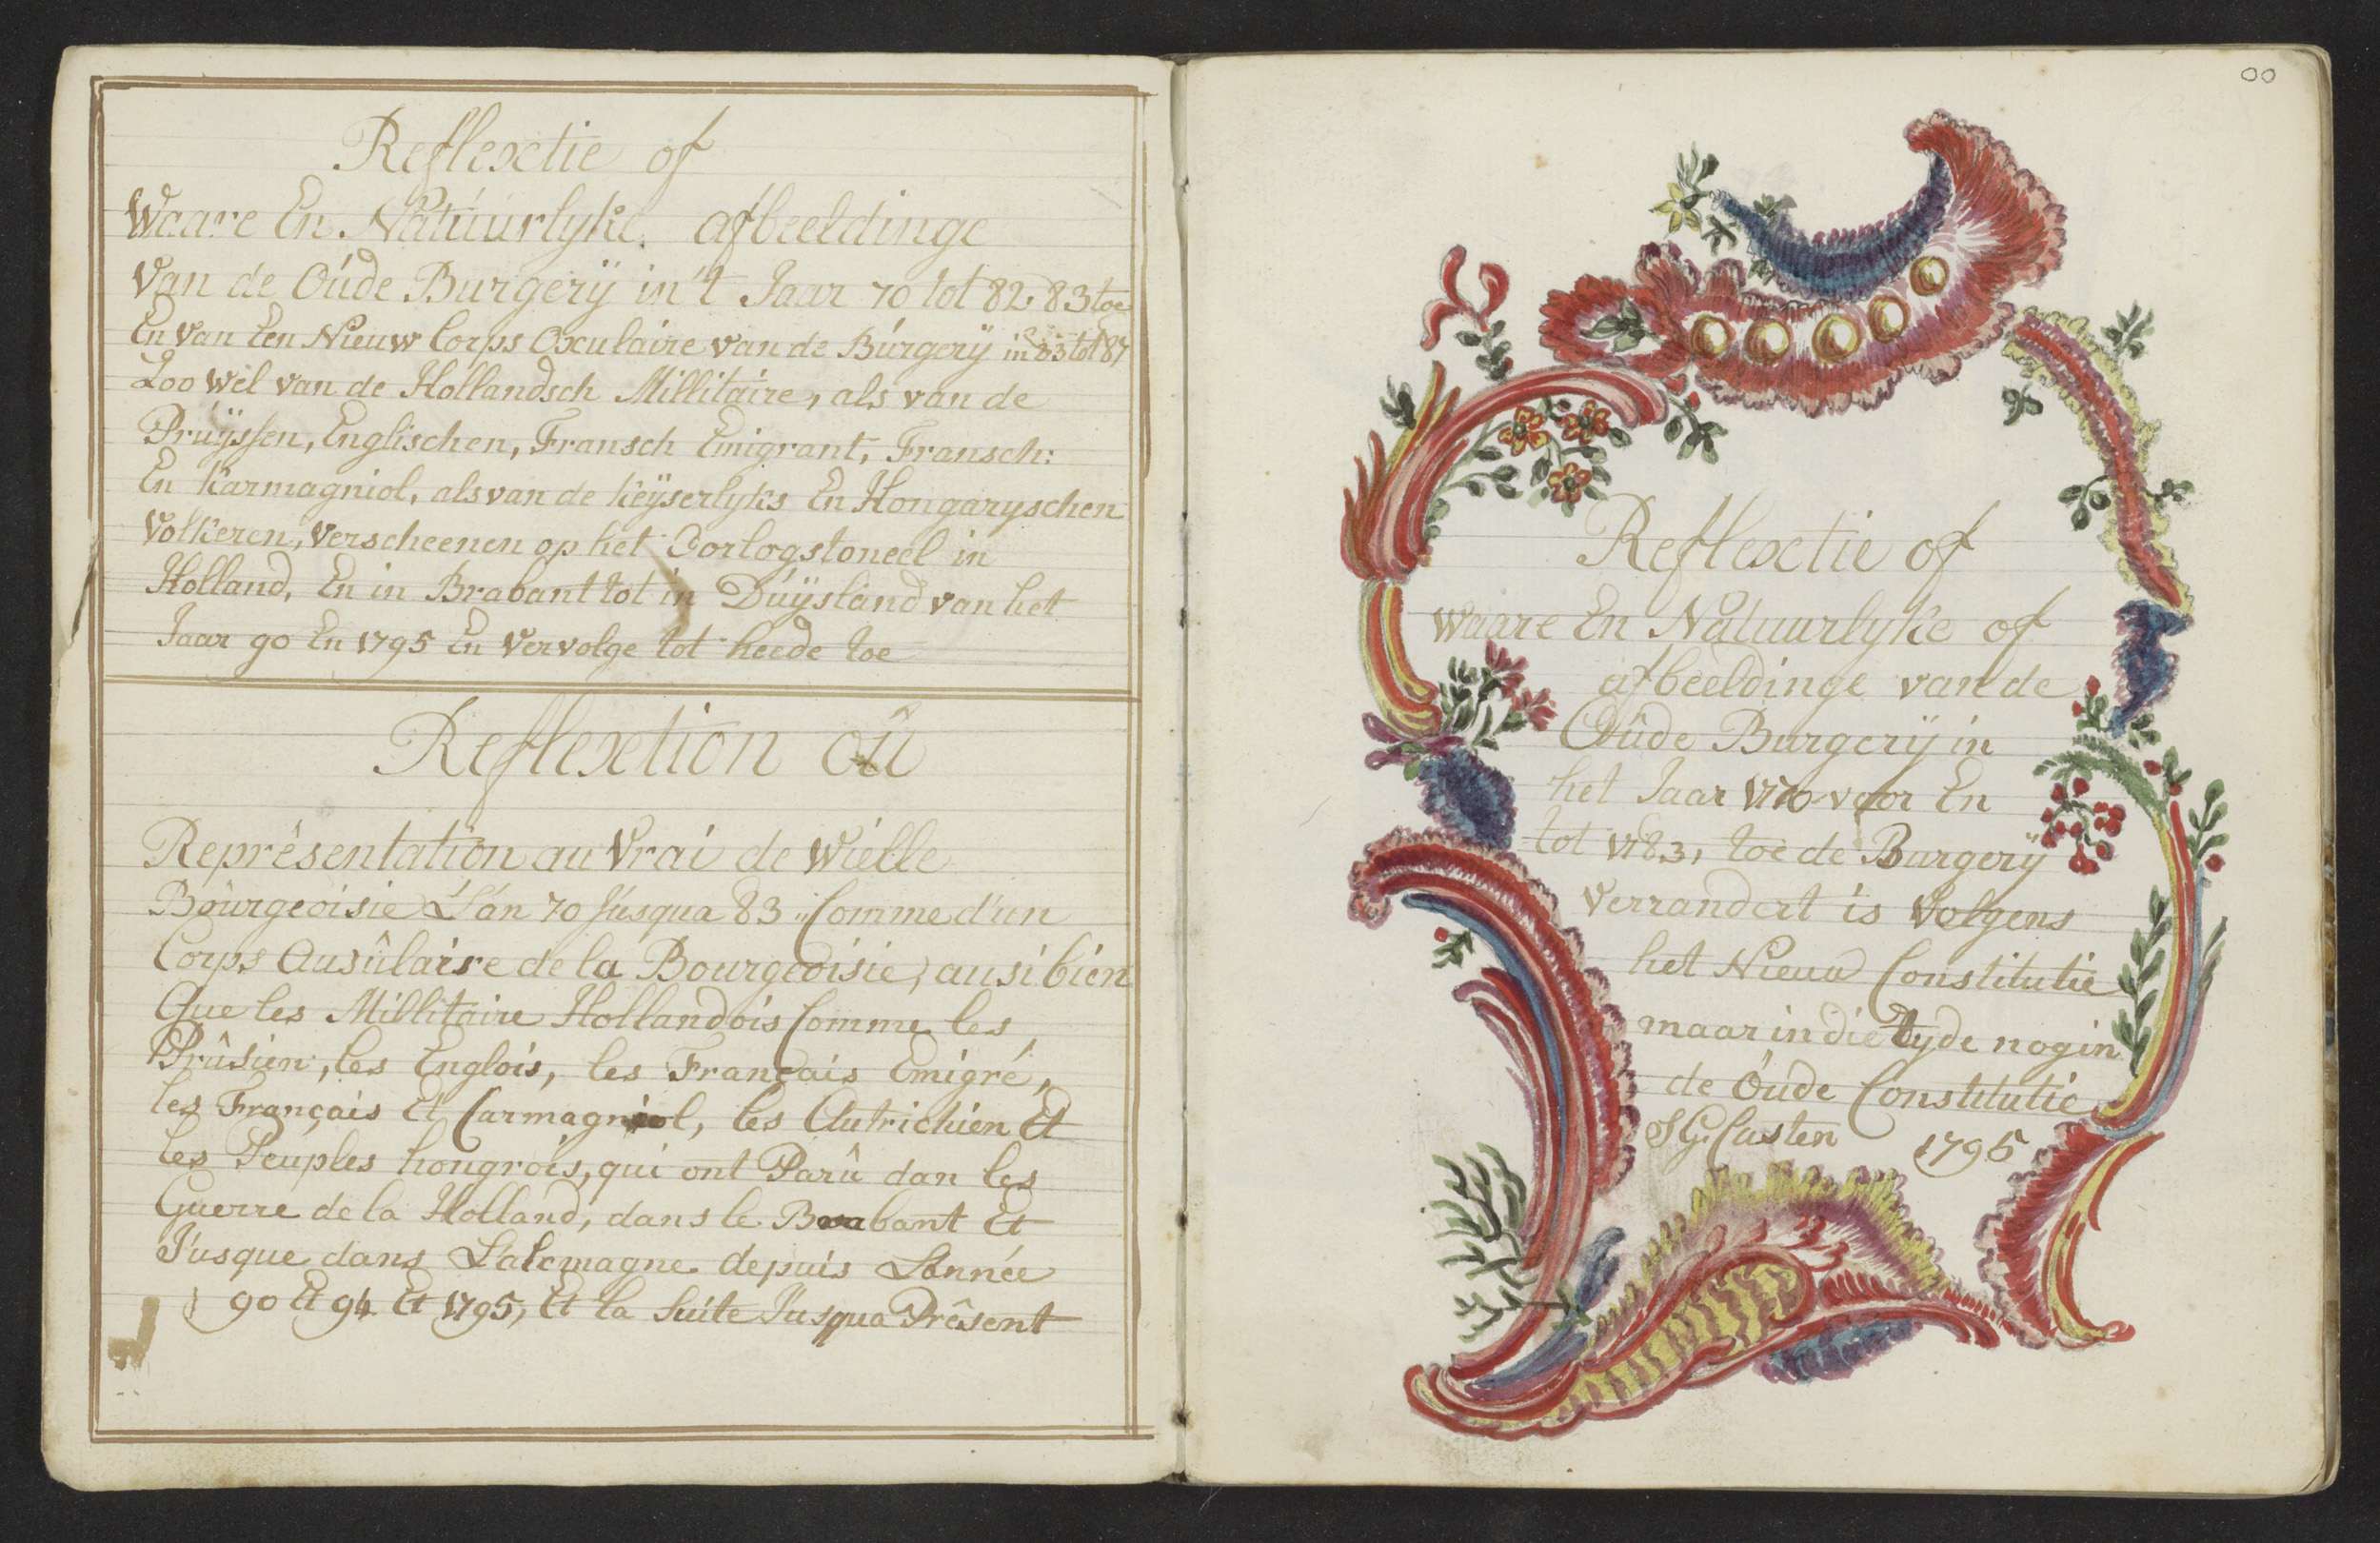 Reflexctie of
Waare En Natuurlyke afbeeldinge
Van de Oude Burgerÿ in't Jaar 70 tot 82. 83 toe
En Van Een Nieuw Corps Oxculaire van de Burgerÿ in 83 tot 87
Zoo wel van de Hollandsch Millitaire, als van de
Pruÿssen, Englischen, Fransch Emigrant, Fransch:
En Karmagniol, als van de Keÿserlyks En Hongaryschen
Volkeren, Verscheenen op het Oorlogstoneel in
Holland, En in Brabant tot in Duÿsland van het
Jaar 90 En 1795 En Vervolge tot heede toe
Reflexction oû
Reprêsentation au Vrai de Wielle
Bourgeoisie L'án 70 Jusqua 83 Comme d'un
Corps Ausûlaire de la Bourgeoisie, ausi bien
Que les Millitaire Hollandois Comme les
Prûsien, les Englois, les Français Emigré,
les Français Et Carmagniol, les Autrichien Et
les Peuples hongrois, qui ont Parû dan les
Guerre de la Holland, dans le Brabant Et
Jusque dans Lalemagne depuis Lánnée
90 Et 94 Et 1795, Et la Suite Jusqua Prêsent
00
Reflexctie of
waare En Natuurlyke of
afbeeldinge van de
Oûde Burgerÿ in
het Jaar 1770 voor En
tot 1783, toe de Burgerÿ
Verrandert is Volgens
het Nieuw Constitutie
maar in die tyde nog in
de Oude Constitutie
S.G. Casten 1795